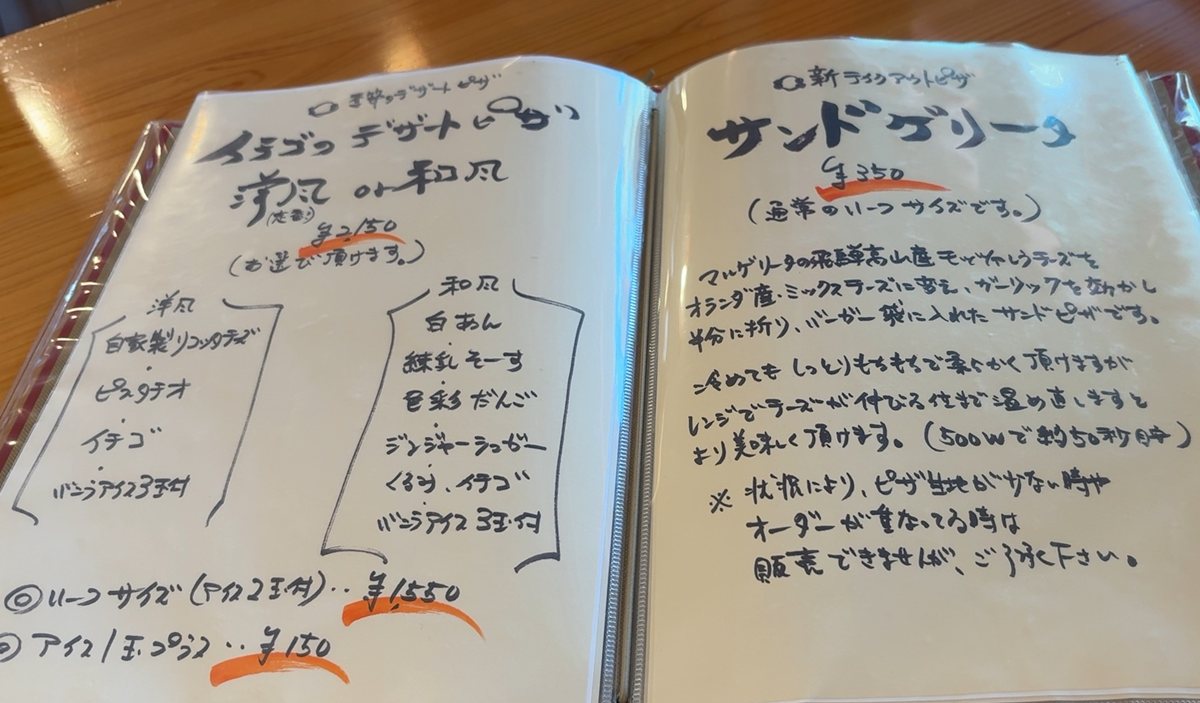 季節のデザートピザ
イチゴのデザートピザ
洋風 or 和風
(定番)
¥2,150
(お選び頂けます。)
洋風
自家製リコッタチーズ
ピスタチオ
イチゴ
バニラアイス3玉付
和風
白あん
練乳そーす
色彩だんご
ジンジャーシュガー
くるみ、イチゴ
バニラアイス3玉付
◎ハーフサイズ(アイス2玉付)‥¥1,550
◎アイス1玉プラス‥¥150
新テイクアウトピザ
サンドゲリータ
¥350
(通常のハーフサイズです。)
マルゲリータの飛騨高山産モッツァレラチーズを
オランダ産・ミックスチーズに変え、ガーリックを効かし
半分に折り、バーガー袋に入れたサンドピザです。
冷めてもしっとりもちもちで柔らかく頂けますが
レンジでチーズが伸びる位まで温め直しますと
より美味しく頂けます。(500Wで約50秒程)
※状況により、ピザ生地が少ない時や
オーダーが重なってる時は
販売できませんが、ご了承下さい。